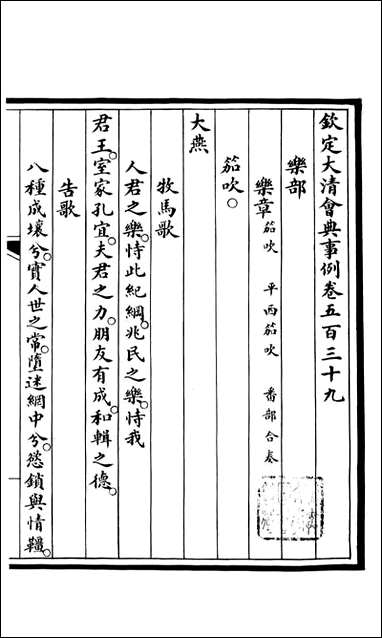 欽定大清會典事例卷五百三十九
樂部
樂章笳吹 平西笳吹 番部合奏
笳吹○
大燕
牧馬歌
人君之樂○恃此紀綱○兆民之樂○恃我
君王○室家孔宜○夫君之力○朋友有成○和輯之德○
吿歌
八種成壞兮○實人世之常○墮迷網中兮○慾鎖與情韁○